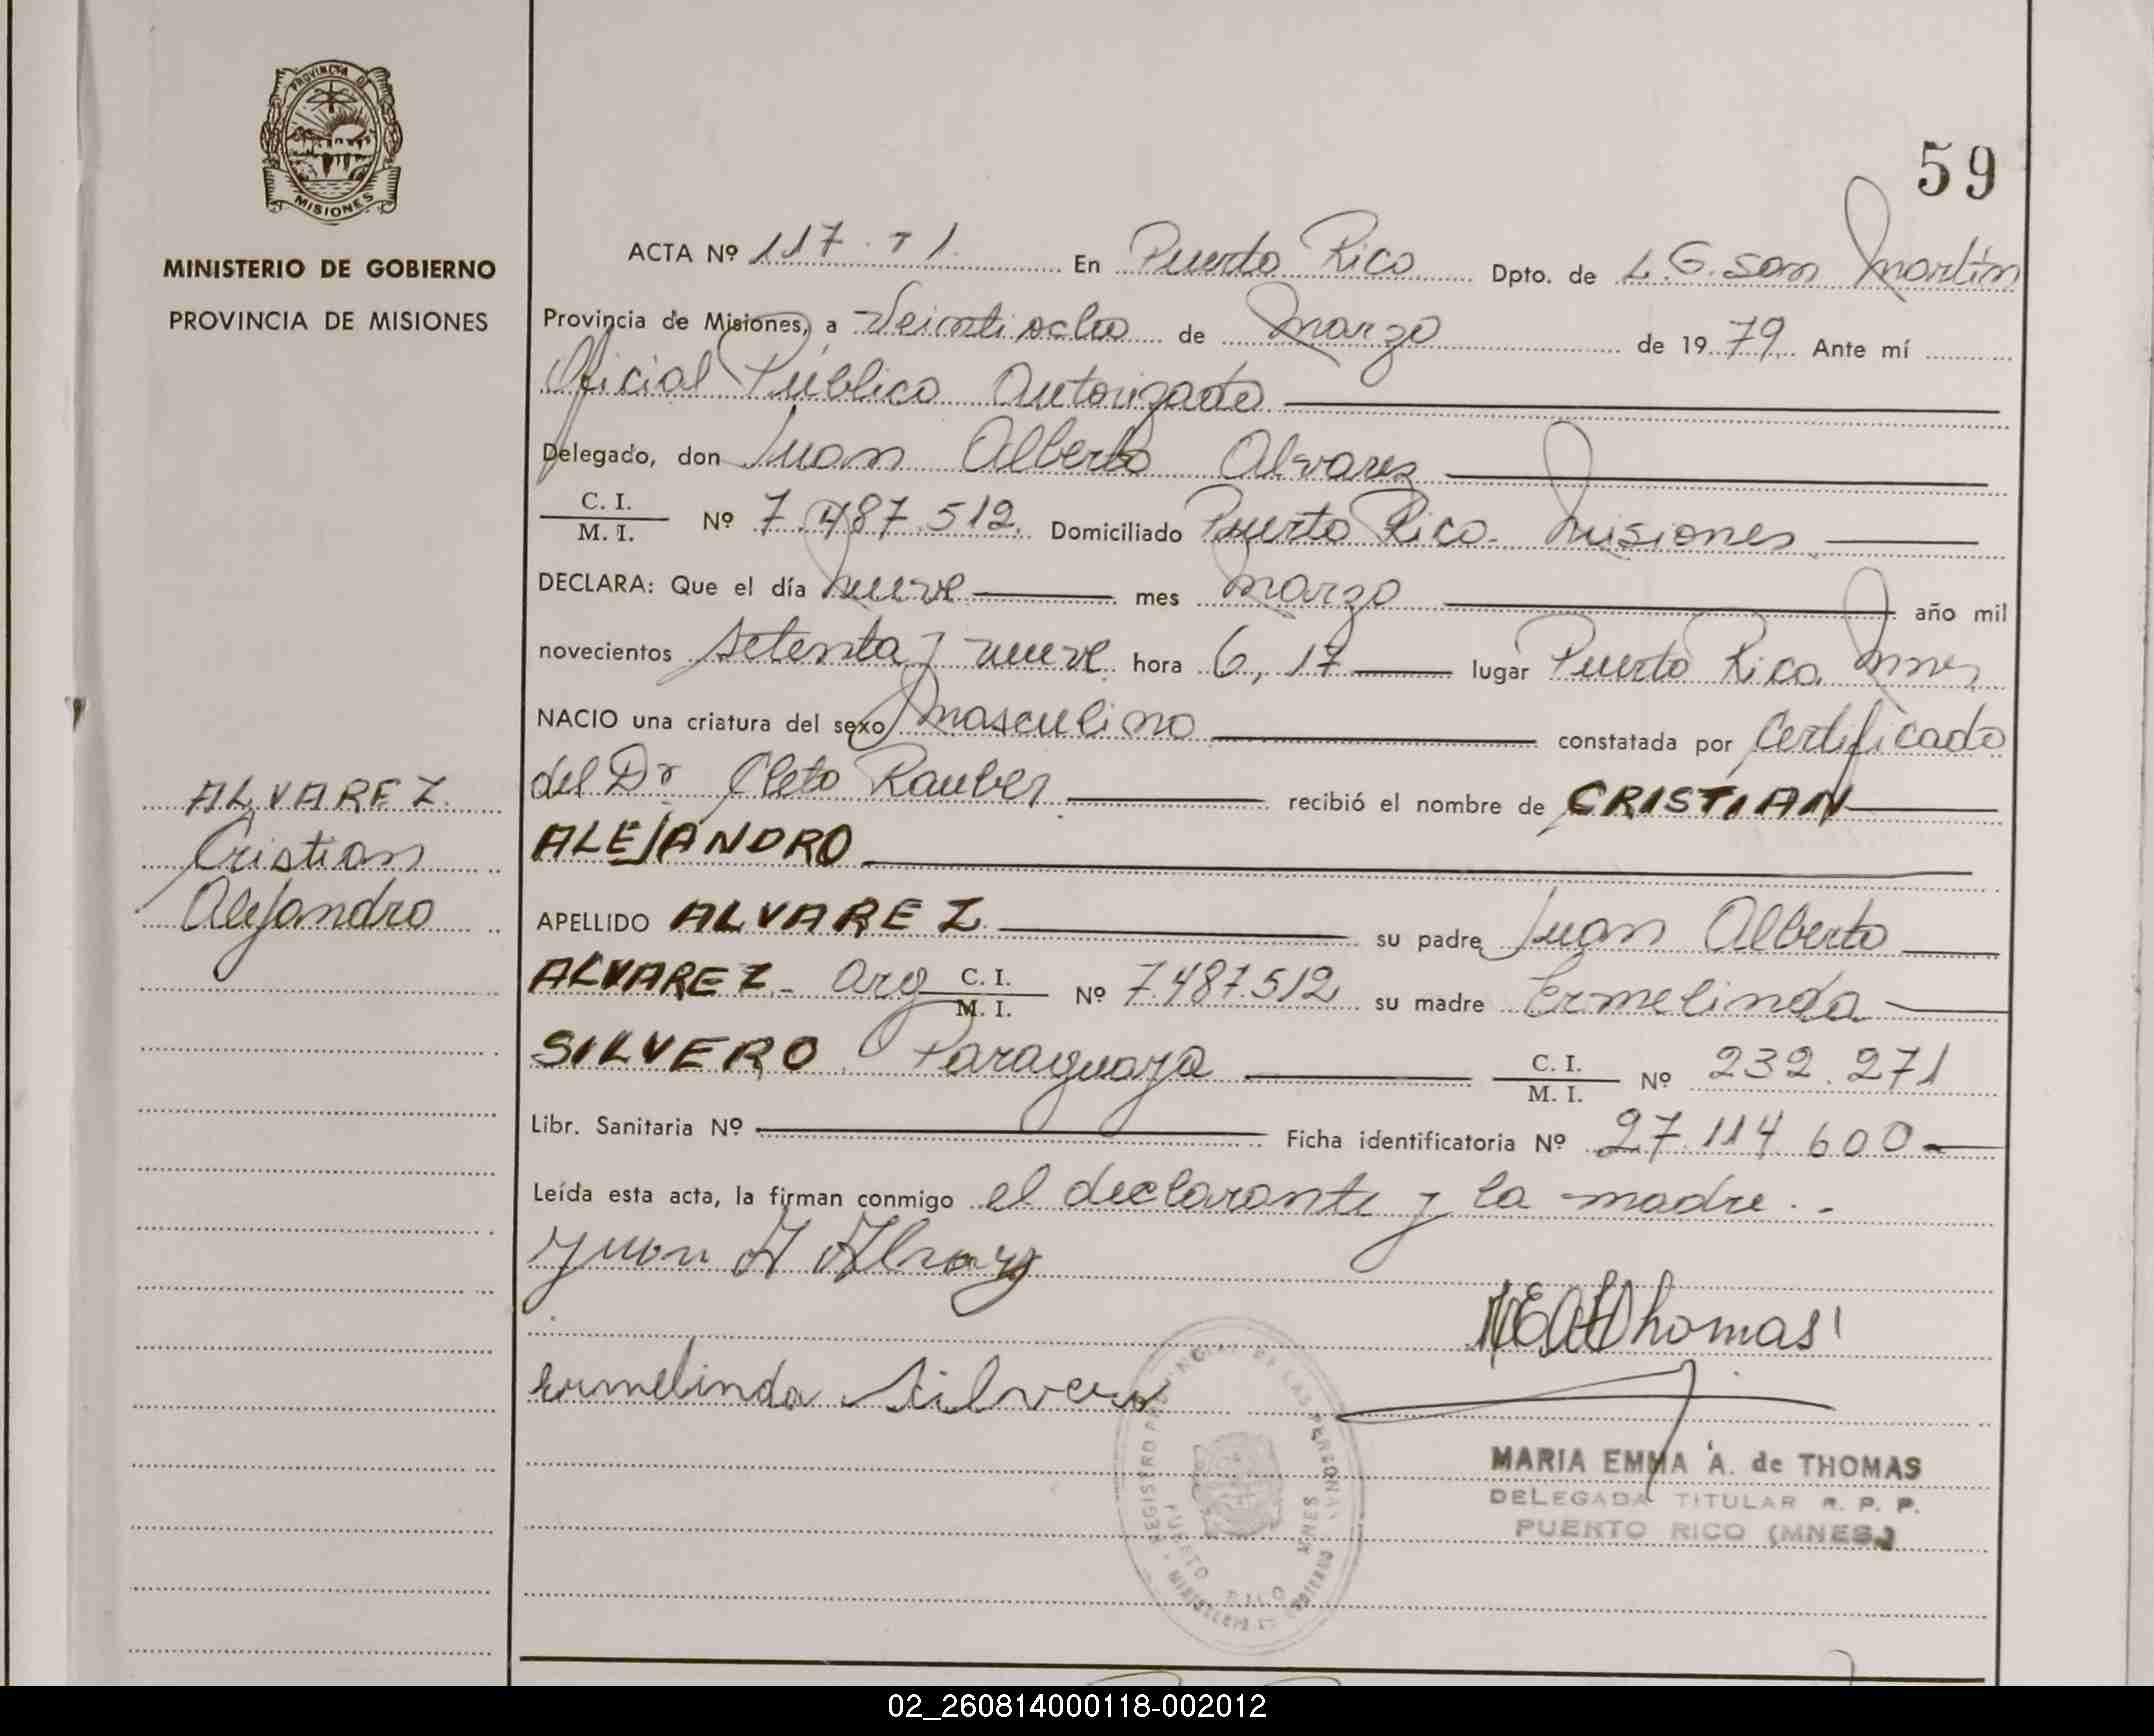 PROVINCIA DE
MISIONES
MINISTERIO DE GOBIERNO
PROVINCIA DE MISIONES
59
ACTA Nº 117. T 1. En Puerto Rico Dpto. de L.G. San Martín
Provincia de Misiones, a Veintiocho de Marzo de 1979. Ante mí
Oficial Público Autorizado
Delegado, don Juan Alberto Alvarez
C. I.
M. I. Nº 7.487.512. Domiciliado Puerto Rico. Misiones
DECLARA: Que el día nueve mes Marzo año mil
novecientos setenta y nueve hora 6,17 lugar Puerto Rico Mnes
NACIO una criatura del sexo Masculino constatada por Certificado
del Dr Cleto Rauber recibió el nombre de CRISTIAN
ALEJANDRO
ALVAREZ
Cristian
Alejandro
APELLIDO ALVAREZ su padre Juan Alberto
ALVAREZ - Arg C. I.
M. I. Nº 7.487.512 su madre Ermelinda
SILVERO Paraguaya C. I.
M. I. Nº 232.271
Libr. Sanitaria Nº Ficha identificatoria Nº 27.114.600-
Leída esta acta, la firman conmigo el declarante y la madre. -
Juan A Alvarez
MEAdThomas
Ermelinda Silvero
REGISTRO PROVINCIAL DE LAS PERSONAS
PUERTO RICO MNES
MINISTERIO DE GOBIERNO
MARIA EMMA A. de THOMAS
DELEGADA TITULAR R. P. P.
PUERTO RICO (MNES.)
02_260814000118-002012